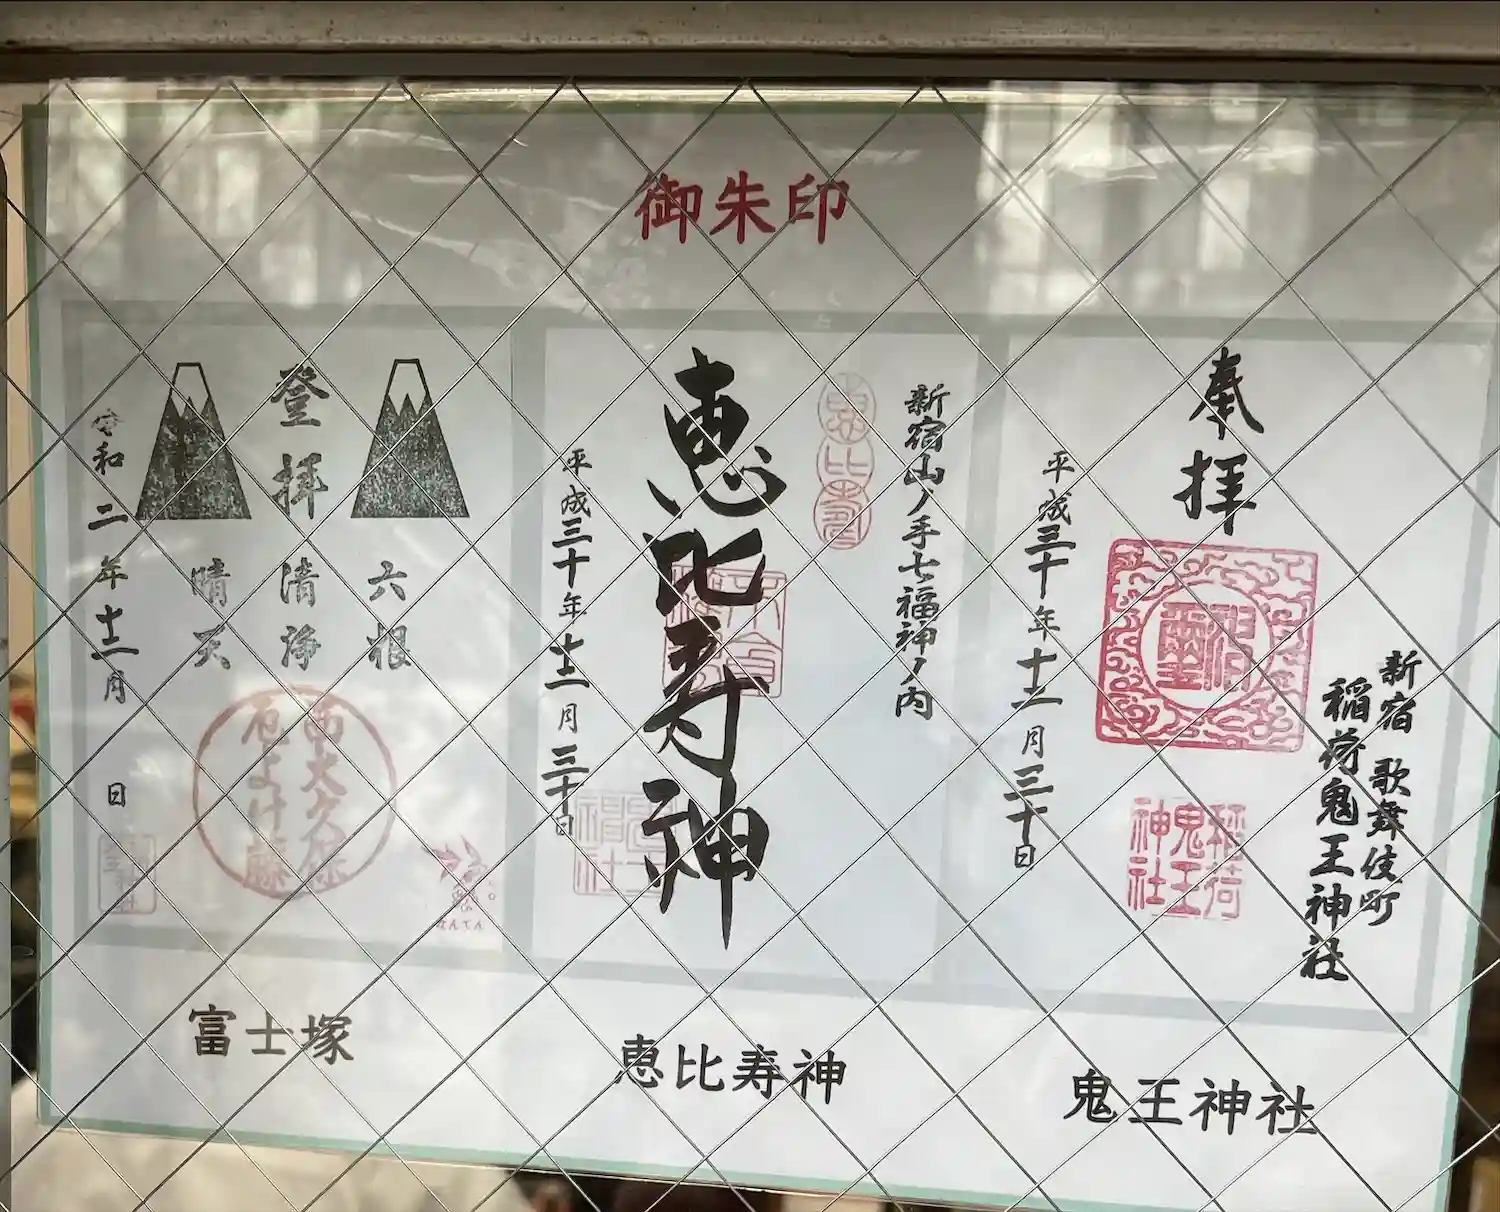 御朱印
奉拝
新宿 歌舞伎町
稲荷鬼王神社
平成三十年十二月三十日
稲荷
鬼王
神社
新宿山ノ手七福神ノ内
恵比寿
恵比寿神
平成三十年十二月三十日
登拝
六根
清浄
晴天
令和二年十二月 日
西大久保
厄よけ
なんてん
鬼王神社
恵比寿神
富士塚